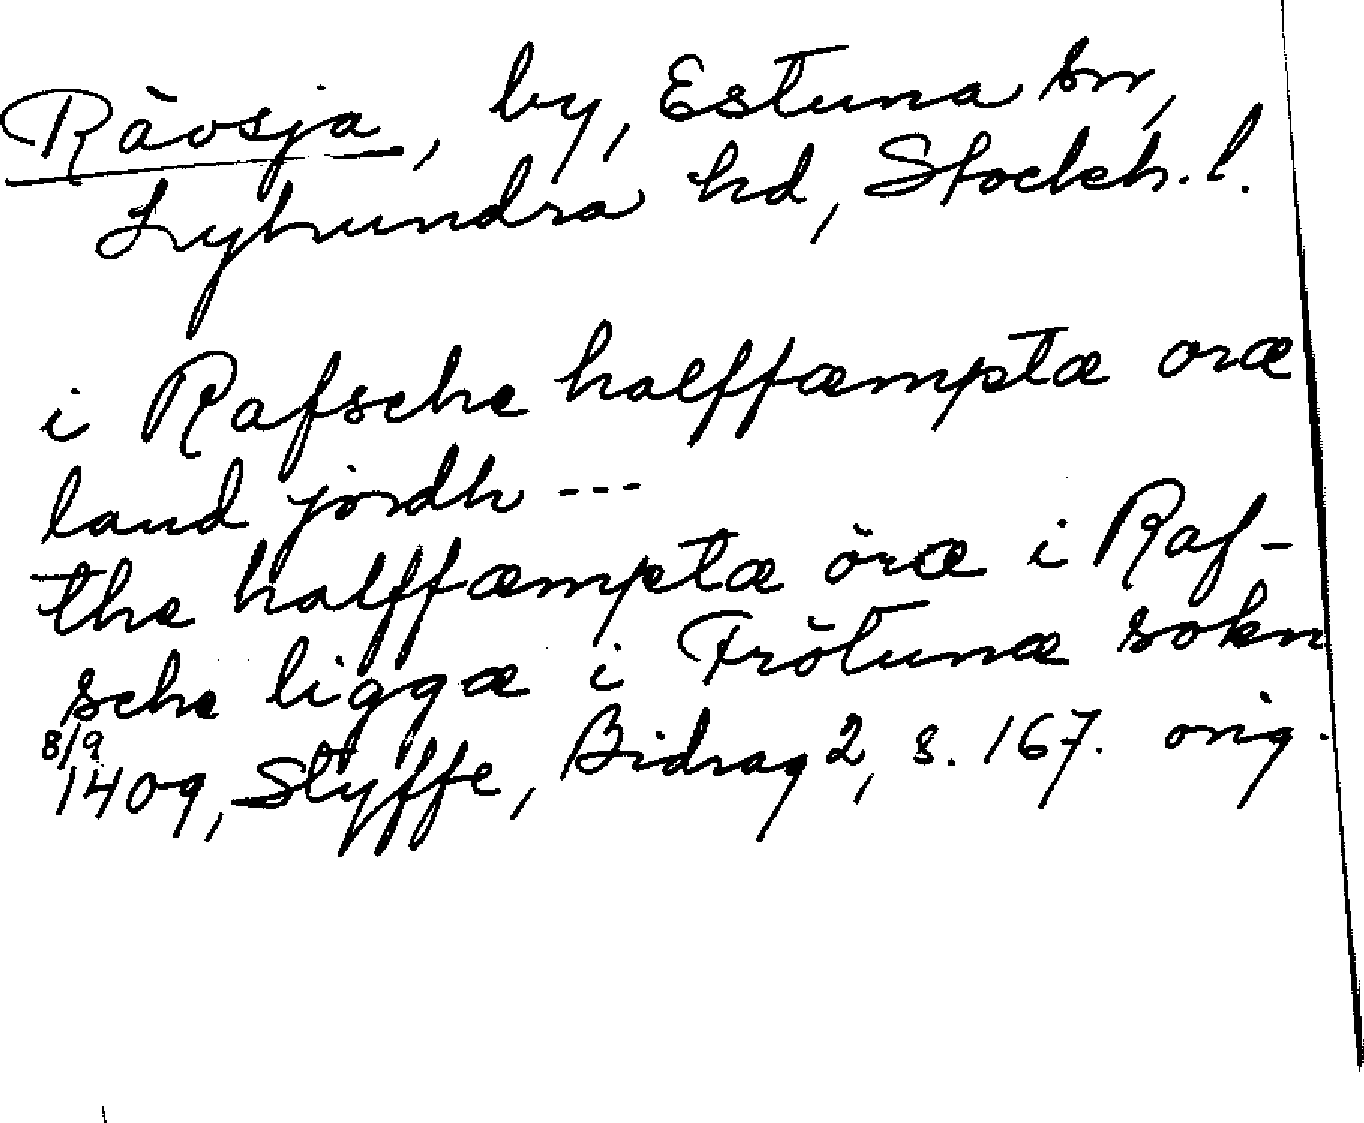 Rävsja, by, Estuna sn,
Lyhundra hd, Stockh. l.
i Rafsche halffæmptæ oræ
land jordh ---
the halffæmptæ öræ i Raf-
sche liggæ i Frötunæ sokn
8/9
1409, Styffe, Bidrag 2, s. 167. orig.